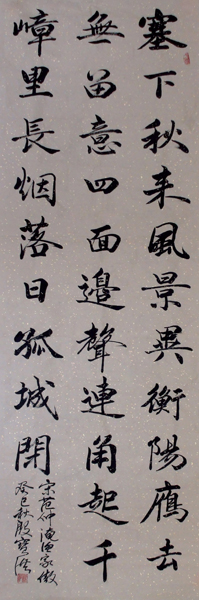 塞下秋来風景異衡陽雁去
無留意四面邊聲連角起千
嶂里長烟落日孤城閉
宋范仲淹漁家傲
癸巳秋殷